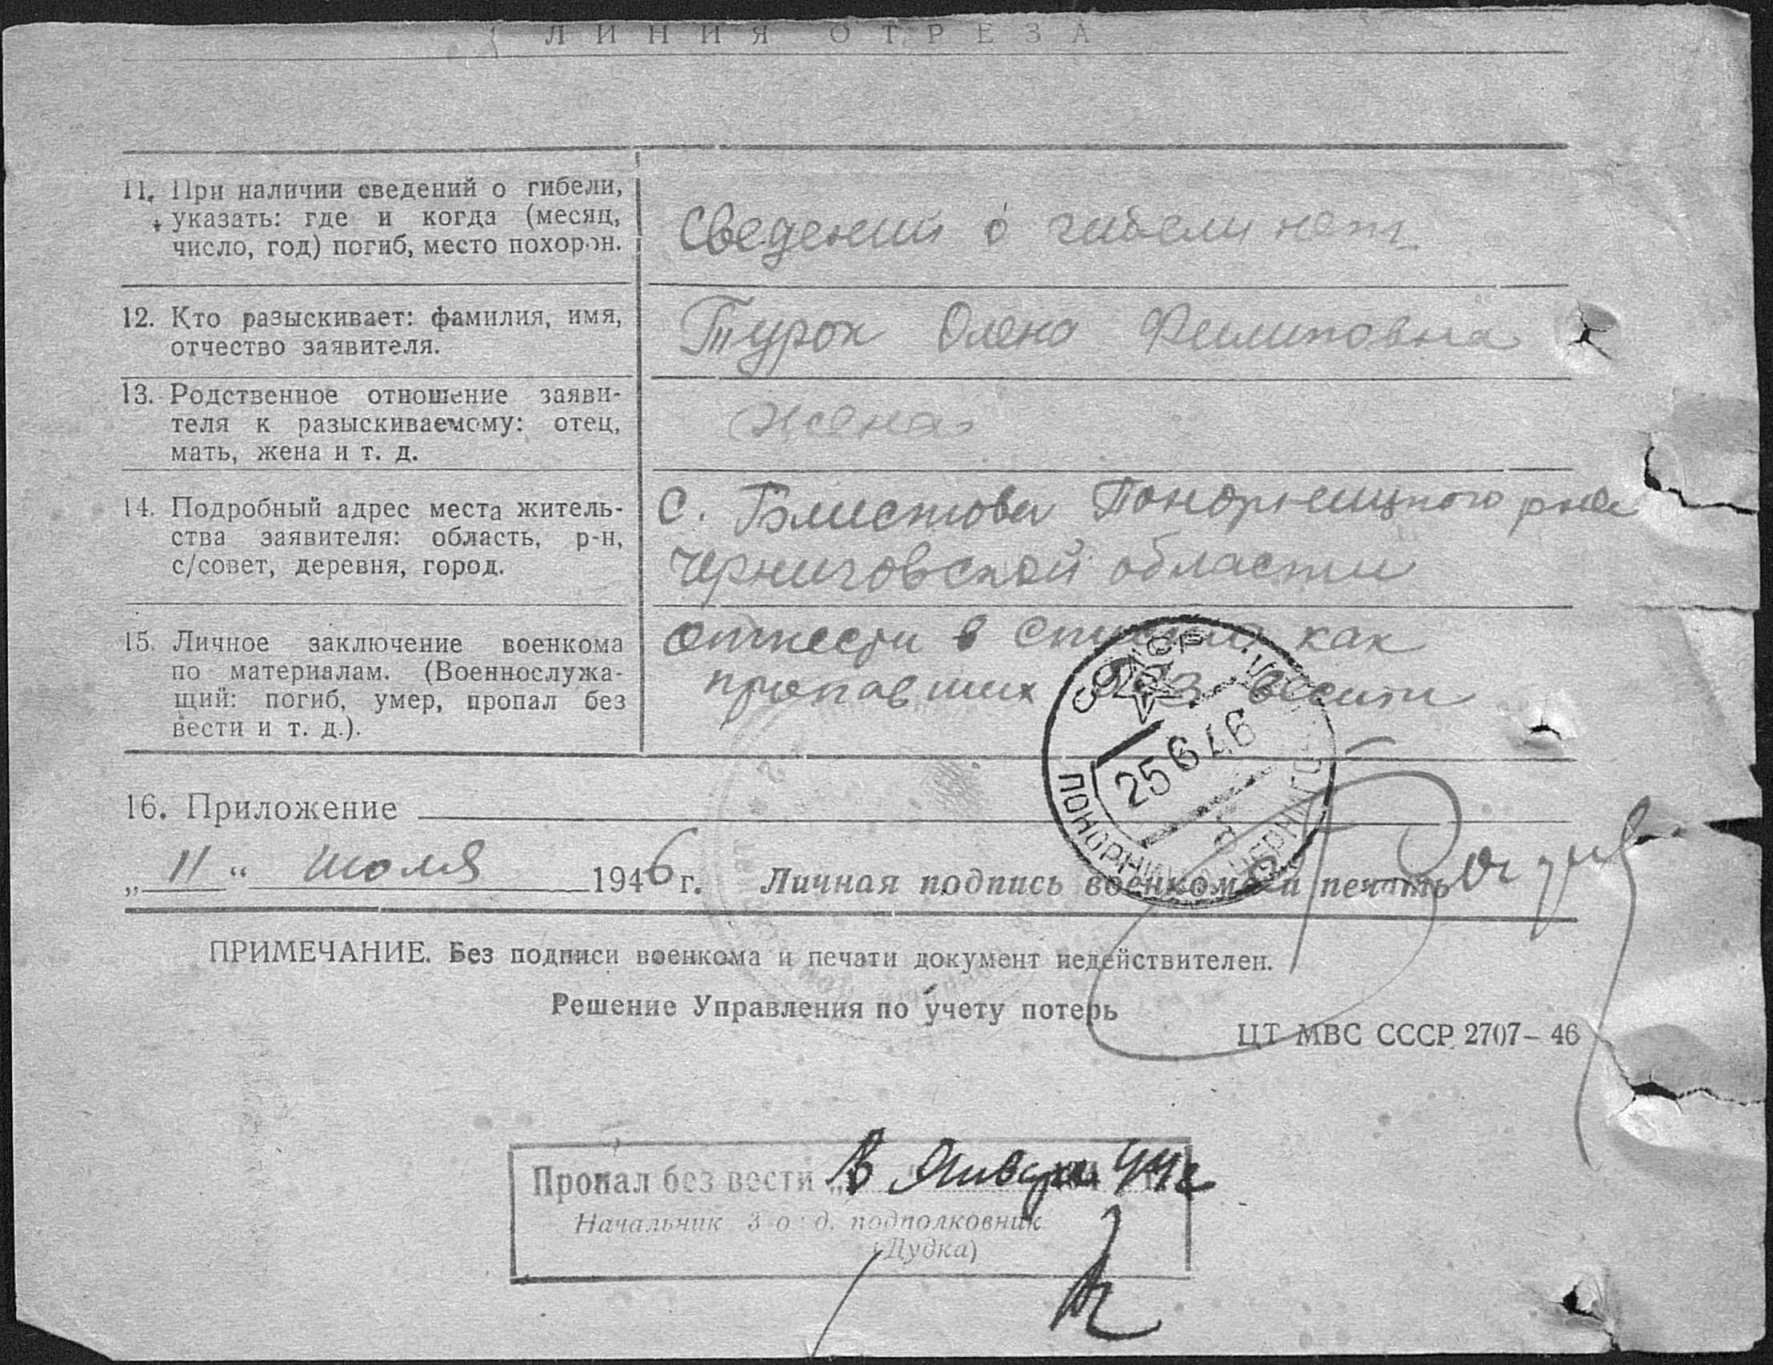 ЛИНИЯ ОТРЕЗА
11. При наличии сведений о гибели,
указать: где и когда (месяц,
число, год) погиб, место похорон.
Сведений о гибели нет
12. Кто разыскивает: фамилия, имя,
отчество заявителя.
Турок Олена Филиповна
13. Родственное отношение заяви-
теля к разыскиваемому: отец,
мать, жена и т. д.
Жена
14. Подробный адрес места житель-
ства заявителя: область, р-н,
с/совет, деревня, город.
с. Блистова Понорницкого р-на
Черниговской области
15. Личное заключение военкома
по материалам. (Военнослужа-
щий: погиб, умер, пропал без
вести и т. д.).
отнести в как
пропавших без вести
25 6 46
ПОНОРНИЦА
16. Приложение
„11“ июля 1946 г. Личная подпись военкома и печать
ПРИМЕЧАНИЕ. Без подписи военкома и печати документ недействителен.
Решение Управления по учету потерь
ЦТ МВС СССР 2707-46
Пропал без вести „в Январе 44г
Начальник 3 о. д. подполковник
(Дудка)